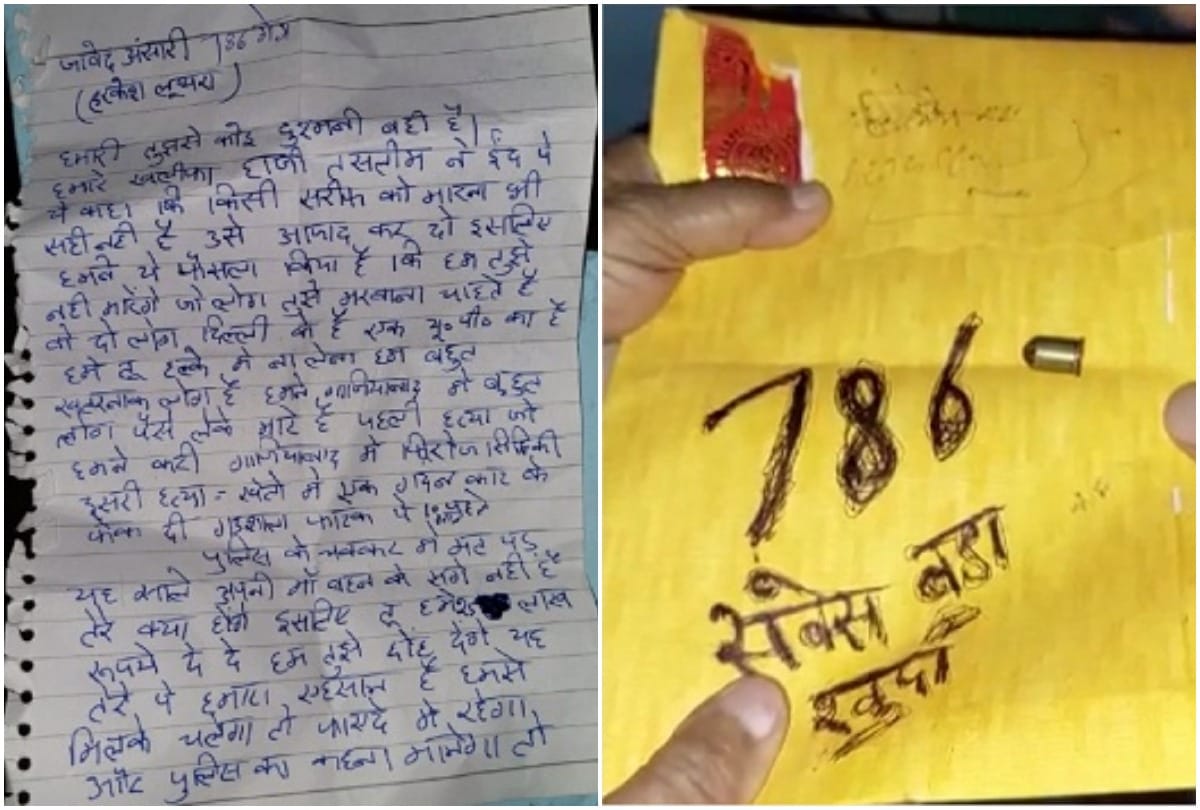 जावेद अंसारी 786 गैंग
(हरकेश लूथरा)
हमारी तुझसे कोइ दुश्मनी नही है।
हमारे खलीफा हाजी तसलीम ने ईद पे
ये कहा कि किसी सरीफ को मारना भी
सही नही है उसे आजाद कर दो इसलिए
हमने ये फैसला किया है कि हम तुझे
नही मारेंगे जो लोग तुझे मरवाना चाहते है
वो दो लोग दिल्ली के है एक यू॰ पी॰ का है
हमे तू हल्के मे ना लेना हम बहुत
खतरनाक लोग है हमने गाजियाबाद मे बहुत
लोग पैसे लेके मारे है पहली हत्या जो
हमने करी गाजियाबाद मे
दुसरी हत्या = खेतो मे एक गर्दन काट के
फेंक दी गऊशाला फाटक पे
पुलिस के चक्कर मे मत पड़
यह साले अपनी माँ बहन के सगे नही है
तेरे क्या होंगे इसलिए तू हमे लाख
रूपये दे दे हम तुझे छोड़ देंगे यह
तेरे पे हमारा एहसान है हमसे
मिलके चलेगा तो फायदे मे रहेगा
और पुलिस का कहना मानेगा तो
786
सबेस बडा
रुकुपा